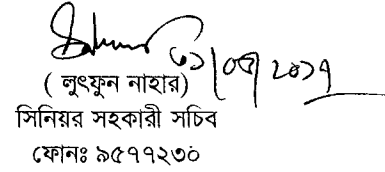 ৩১/০৫/২০১৭
( লুৎফুন নাহার)
সিনিয়র সহকারী সচিব
ফোনঃ ৯৫৭৭২৩০